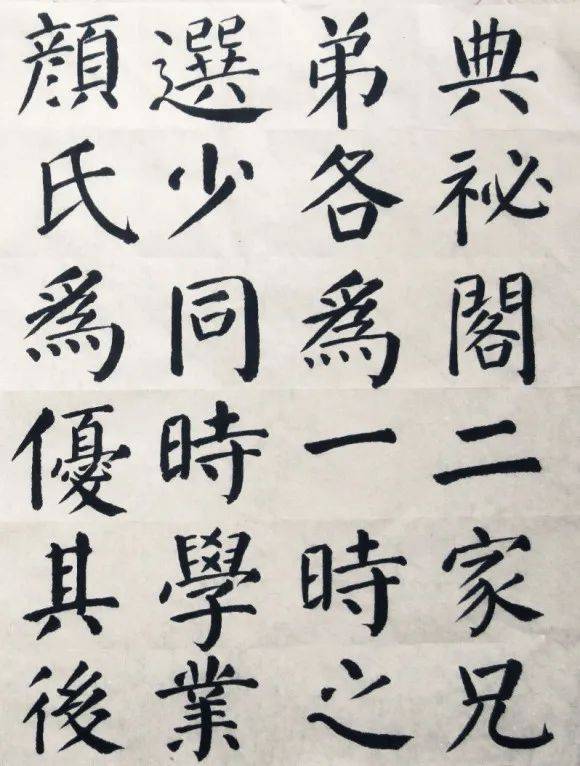 典祕閣二家兄
弟各爲一時之
選少同時學業
顔氏爲優其後